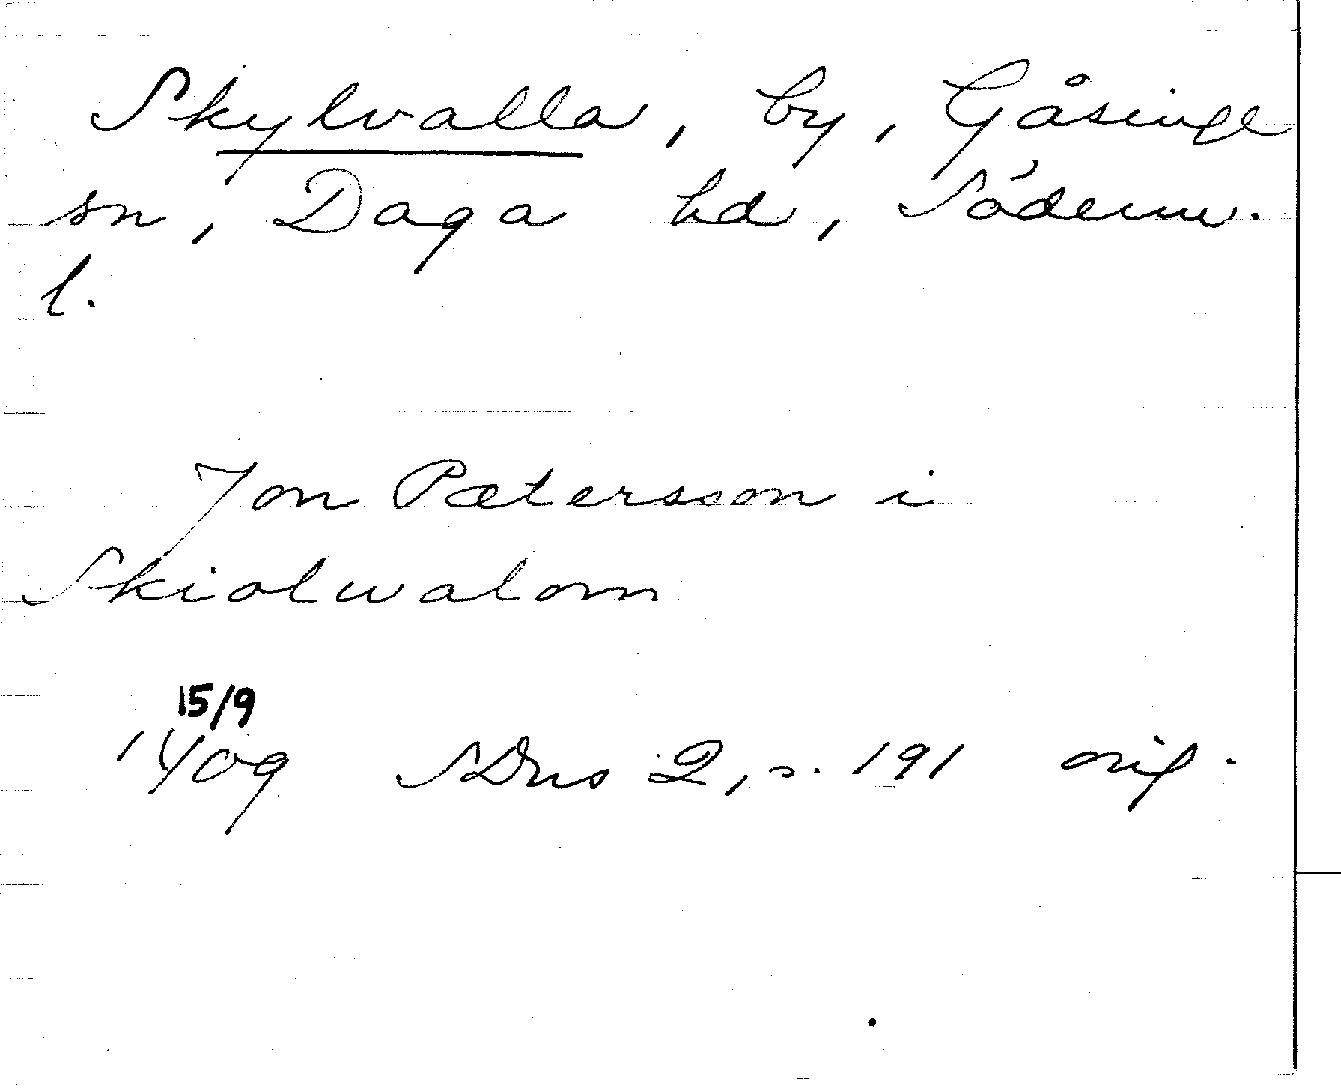 Skylvalla, by, Gåsinge
sn, Daga hd, Söderm.
l.
Jon Pætersson i
Skiolwalom
15/9
1409 SDns 2, s. 191 orig.